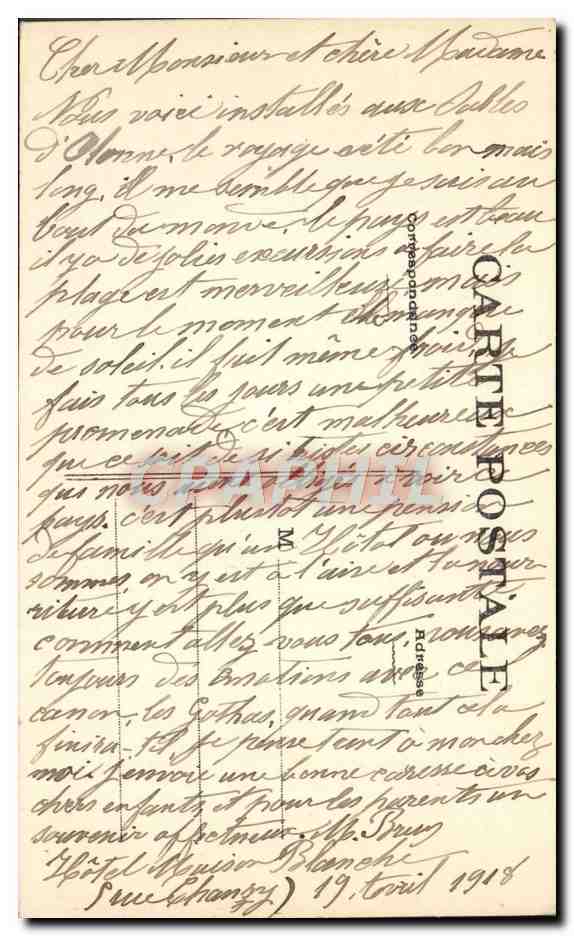 Cher Monsieur et chère Madame
Nous voici installés aux Sables
d'Olonne, le voyage a été bon mais
long, il me semble que je suis au
bout du monde, le pays est beau
il y a de jolies excursions à faire la
plage est merveilleuse, mais
pour le moment il manque
de soleil, il fait même froid, je
fais tous les jours une petite
promenade, c'est malheureux
que ce soit de si tristes circonstances
qui nous aient obligés à voir ce
pays. c'est plustot une pension
de famille qu'un Hôtel ou nous
sommes, on y est à l'aise et la nour
riture y est plus que suffisante
comment allez vous tous,
toujours des émotions avec ce
canon, les Gothas, quand tout cela
finira-t-il, je pense tant à mon chez
moi. J'envoie une bonne caresse à vos
chers enfants, et pour les parents un
souvenir affectueux. M. Brun
Hôtel Maison Blanche
(rue Chanzy) 19, Avril 1918
CARTE POSTALE
Correspondance
Adresse
M
CPAPHIL